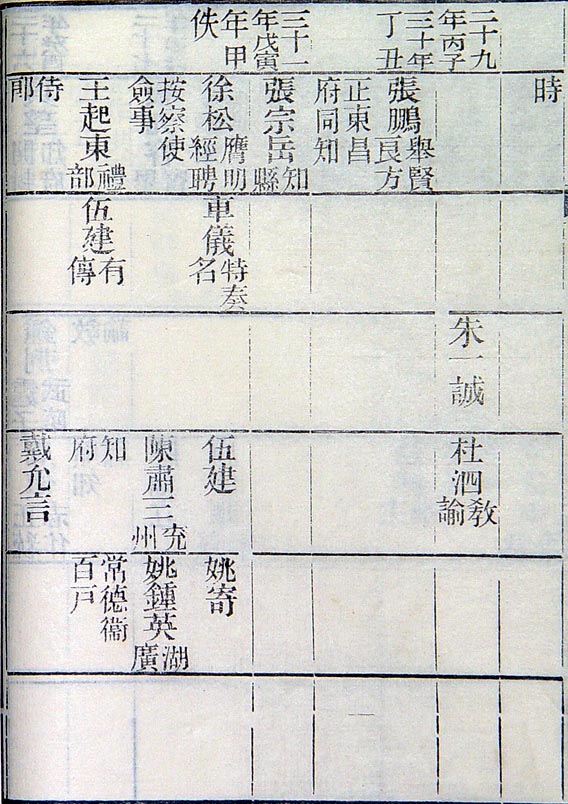 二十九
年丙子
三十年
丁丑
三十一
年戊寅
年甲
佚
時
張鵬舉賢
良方
正東昌
府同知
張宗岳知
縣
徐松膺明
經聘
按察使
僉事
王起東禮
部
侍
郎
車儀特奏
名
伍建有
傳
朱一誠
杜泗教
諭
伍建
陳肅三兗
州
知
府
戴允言
姚寄
姚鍾英湖
廣
常德衞
百戶